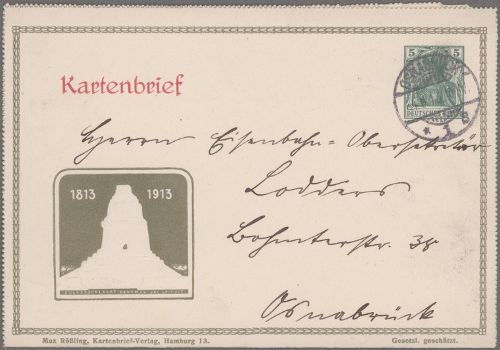 5 5
DEUTSCHES REICH
Kartenbrief
Herrn Eisenbahn-Obersekretär
Lodders
Bohmterstr. 38
Osnabrück
1813 1913
Max Rößling, Kartenbrief-Verlag, Hamburg 13.
Gesetzl. geschützt.